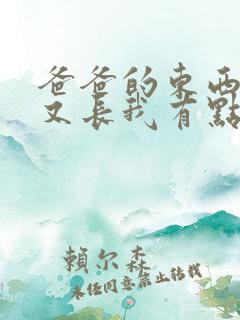 爸爸的東西
又長我有點
賴尔森
未经同意禁止转载